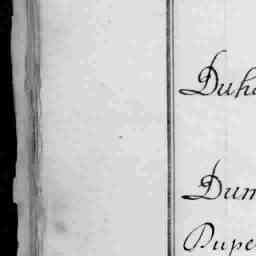 Duha
Dum
Dupe